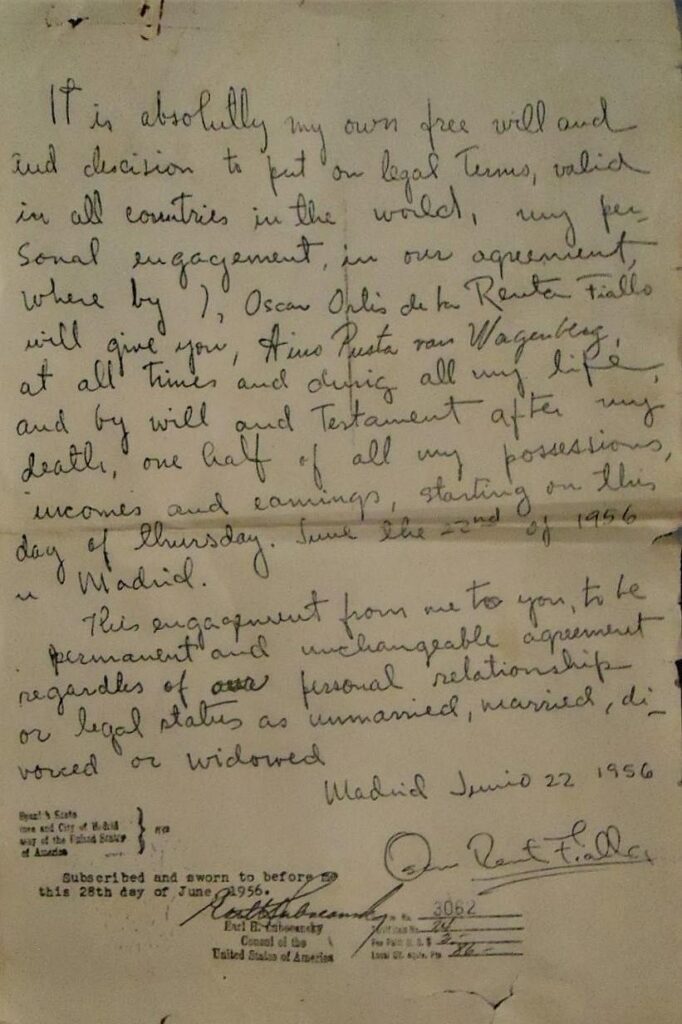 It is absolutlly my own free will and
and decision to put on legal terms, valid
in all countries in the world, my per-
sonal engagement, in our agreement,
where by I, Oscar Ortis de la Renta Fiallo
will give you, Aino Pusta van Wagenberg,
at all times and durig all my life,
and by will and Testament after my
death, one half of all my possessions,
incomes and earnings, starting on this
day of thursday. June the 22nd of 1956
in Madrid.
This engagement from me to you, to be
permanent and unchangeable agreement
regardles of our personal relationship
or legal status as unmarried, married, di-
vorced or widowed
Madrid Junio 22 1956
Oscar Rent Fiallo
and City of Madrid
of the United States
of America
Subscribed and sworn to before me
this 28th day of June 1956.
Earl H. Lubeansky
Consul of the
United States of America
No. 3062
Fee Paid U. S. $
Local Cy. equiv. Pts 86-